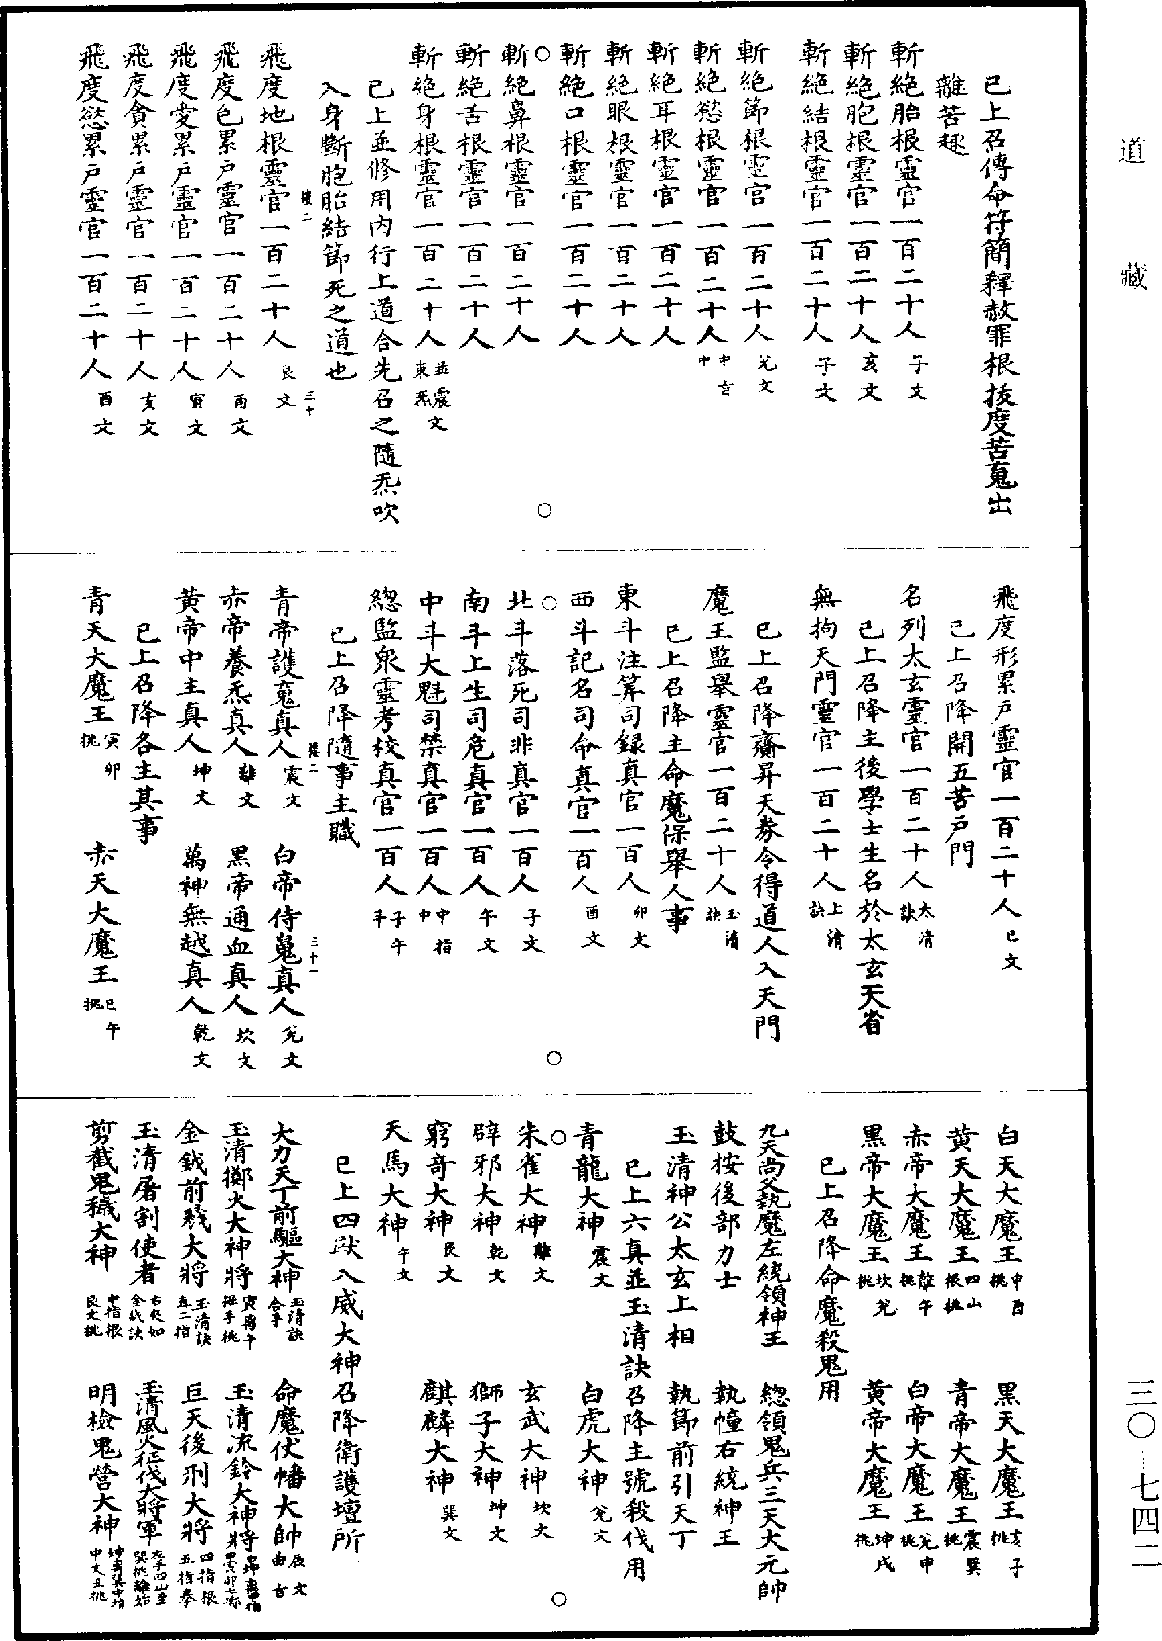 道藏
三〇—七四二
已上召傳命符簡釋赦罪根拔度苦䰟出
離苦趣
斬絶胎根靈官一百二十人子文
斬絶胞根靈官一百二十人亥文
斬絶結根靈官一百二十人子文
斬絶節根靈官一百二十人兊文
斬絶慾根靈官一百二十人中吉中
斬絶耳根靈官一百二十人
斬絶眼根靈官一百二十人
斬絶口根靈官一百二十人
斬絶鼻根靈官一百二十人
斬絶舌根靈官一百二十人
斬絶身根靈官一百二十人並震文東炁
已上並修用内行上道合先召之隨炁吹
入身斷胞胎結節死之道也
三十
飛度地根靈官一百二十人艮文
飛度色累户靈官一百二十人丙文
飛度愛累户靈官一百二十人寅文
飛度貪累户靈官一百二十人亥文
飛度慾累户靈官一百二十人酉文
飛度形累户靈官一百二十人巳文
已上召降開五苦户門
名列太玄靈官一百二十人太清訣
已上召降主後學士生名於太玄天省
無拘天門靈官一百二十人上清訣
已上召降齋昇天券令得道人入天門
魔王監舉靈官一百二十人玉清訣
已上召降主命魔保舉人事
東斗注筭司録真官一百人卯文
西斗記名司命真官一百人酉文
北斗落死司非真官一百人子文
南斗上生司危真官一百人午文
中斗大魁司禁真官一百人中指中
總監衆靈考校真官一百人子午斗
已上召降隨事主職
三十一
青帝護䰟真人震文 白帝侍䰠真人兊文
赤帝養炁真人離文 黑帝通血真人坎文
黄帝中主真人坤文 萬神無越真人乾文
已上召降各主其事
青天大魔王寅卯挑 赤天大魔王巳午挑
白天大魔王申酉挑 黑天大魔王亥子挑
黄天大魔王四山根挑 青帝大魔王震巽挑
赤帝大魔王離午挑 白帝大魔王兊申挑
黑帝大魔王坎兊挑 黄帝大魔王坤戌挑
已上召降命魔殺鬼用
九天尚父執魔左統領神王 總領鬼兵三天大元帥
鼓按後部力士 執幢右統神王
玉清神公太玄上相 執節前引天丁
已上六真並玉清訣召降主號殺伐用
青龍大神震文 白虎大神兊文
朱雀大神離文 玄武大神坎文
辟邪大神乾文 獅子大神坤文
窮奇大神艮文 麒麟大神巽文
天馬大神午文
已上四獸入威大神召降衛護壇所
大力天丁前驅大神玉清訣合手 命魔仗幡大帥辰文由吉
玉清擲火大神將 玉清流鈴大神將
金鉞前戮大將玉清訣直二指 巨天後刑大將四指根五指拳
玉清屠割使者 玉清風火征伐大將軍
剪截鬼穢大神中指根艮文挑 明檢鬼營大神